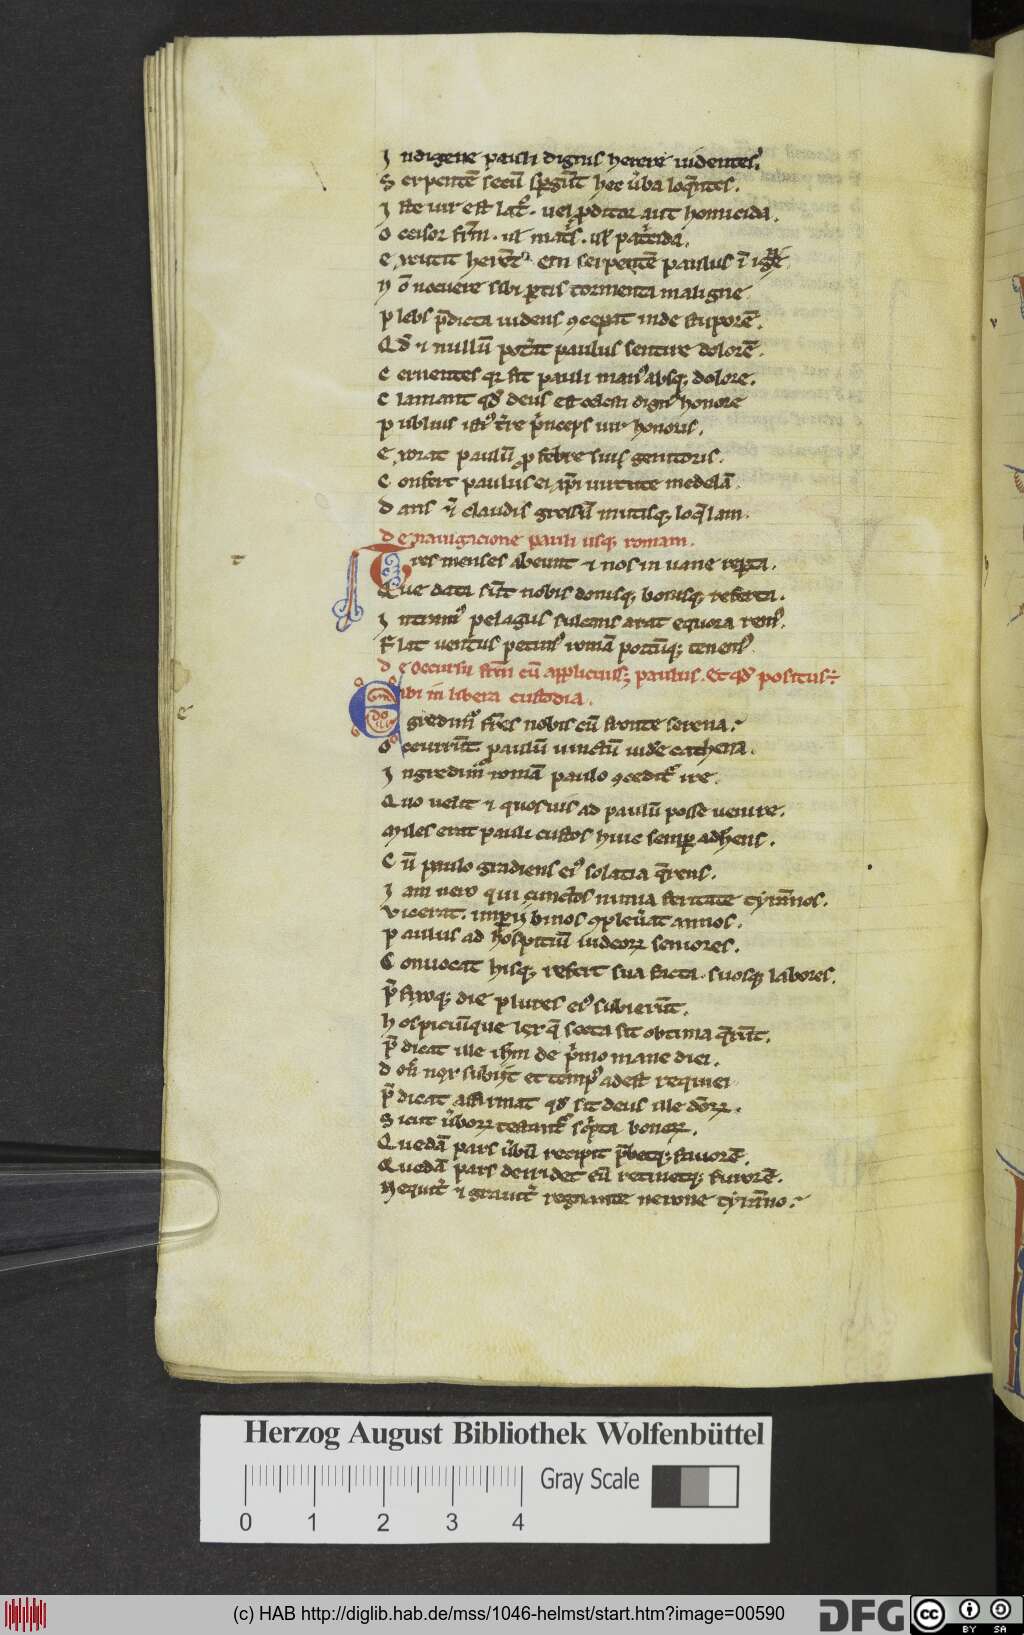 Indigene pauli digitis herere uidentes.
Serpentē secū spgūt hec ūba loqn̄tes.
Iste uir est lat̄. uel pditor aut homicida.
Occisor frm̄. ul matis. ul patcida.
Excutit serpentē paulus ī
Nō nocuere sibi tormenta maligne
Plebs p̄dicta uidens ꝯcepit inde stuporē.
Qd ⁊ nullū pot̄it paulus sentire dolorē.
Cernentes qr fit pauli man⁹ absq; dolore.
Clamant qd deus est dign⁹ honore
Publius t̄re p̄nceps uir honoris.
Exorat paulū p febre sui genitoris.
Confert paulus ei xp̄i uirtute medelā
Dans ⁊ claudis gressū mutisq; loq̄lam.
de nauigacione pauli usq; romam.
Tres menses abeunt ⁊ nos in naue repta.
Que data sūt nobis donisq; bonisq; referta.
Intram⁹ pelagus sulcans arat equora rem⁹.
Flat uentus petim⁹ romā portūq; tenem⁹
de occursu frm̄ cū applicuiss; paulus. Et qd positus
sibi in libera custodia.
Egredim̄ fr̄es nobis cū fronte serena.
Occurrūt. paulū uinctū uide cathena.
Ingredim̄ romā paulo ꝯcedit̄ ire.
Quo uelit ⁊ quosuis ad paulū posse uenire.
Miles erat pauli custos huic semp adhens.
Cū paulo gradiens ei⁹ solatia q̄rens.
Iam nero qui cunctos nimia feritate tyrān̄os.
Vicerat. impii binos ꝯpleūat annos.
Paulus ad hospitiū iudeoꝝ seniores.
Conuocat hisq; refert sua facta. suosq; labores.
p̄fixoq; die plures ei⁹ subierūt.
Hospiciūque lex q̄ secta sit obtima q̄rūt.
p̄dicat ille ihm̄ de p̄mo mane diei.
Don̄ nox subiit et temp⁹ adest requiei
p̄dicat affirmat qd sit deus ille
Sicut ūboꝝ testant̄ sc̄pta bonoꝝ.
Quedā pars ūbū recipit p̄betq; fauorē.
Quedā pars deridet cū retinetq; furorē.
Nequit̄ ⁊ grauit̄ regnante nerone tyrān̄o.
Herzog August Bibliothek Wolfenbüttel
0 1 2 3 4
Gray Scale
(c) HAB http://diglib.hab.de/mss/1046-helmst/start.htm?image=00590
DFG
cc BY SA